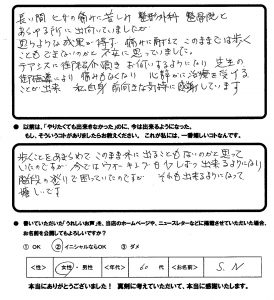 長い間 ヒザの痛みに苦しみ 整形外科 整骨院と
あらゆる所に出向いていましたが
思うような成果が得ず 痛みに耐えて このままでは歩く
こともできないのかと 不安に思っていました。
御紹介頂き お伺いするようになり 先生の
痛みもなくなり 心静かに治療を受ける
ことが出来 私自身 前向きな気持に感謝しています
● 以前は、「やりたくても出来きなかった」のに、今は出来るようになった。
もし、そういうコトがありましたらお教えください。これが私には、一番嬉しいコトなんです。
歩くことをあきらめて このまま外に出ることもないのかと思って
いたのですが 今ではウオーキングも少しずつ出来るようになり
階段の登りと思っていたのですが それも出来るようになって
嬉しいです
● 書いていただいた「うれしいお声」を、当店のホームページや、ニュースレターなどに掲載させていただいた場合、
お名前を公開してもよろしいですか?
① OK ②イニシャルならOK ③ ダメ
<性> 女性・男性 <年代> 60代 <お名前> S.N
本当にありがとうございました! 真剣に考えていただいて、本当に感謝いたします。